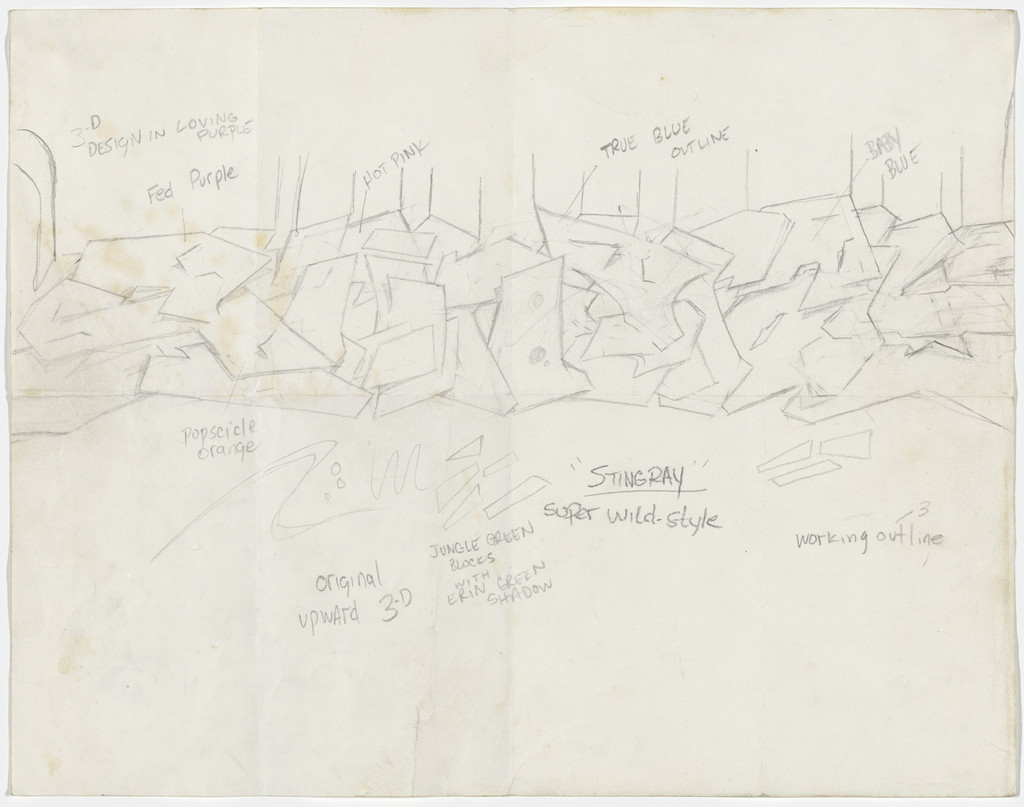 3-D
DESIGN IN LOVING
PURPLE
Fed Purple
HOT PINK
TRUE BLUE
OUTLINE
BABY
BLUE
Popscicle
orange
"STINGRAY"
super wild-style
3
working outline
JUNGLE GREEN
BLOCKS
WITH
ERIN GREEN
SHADOW
original
upward 3-D